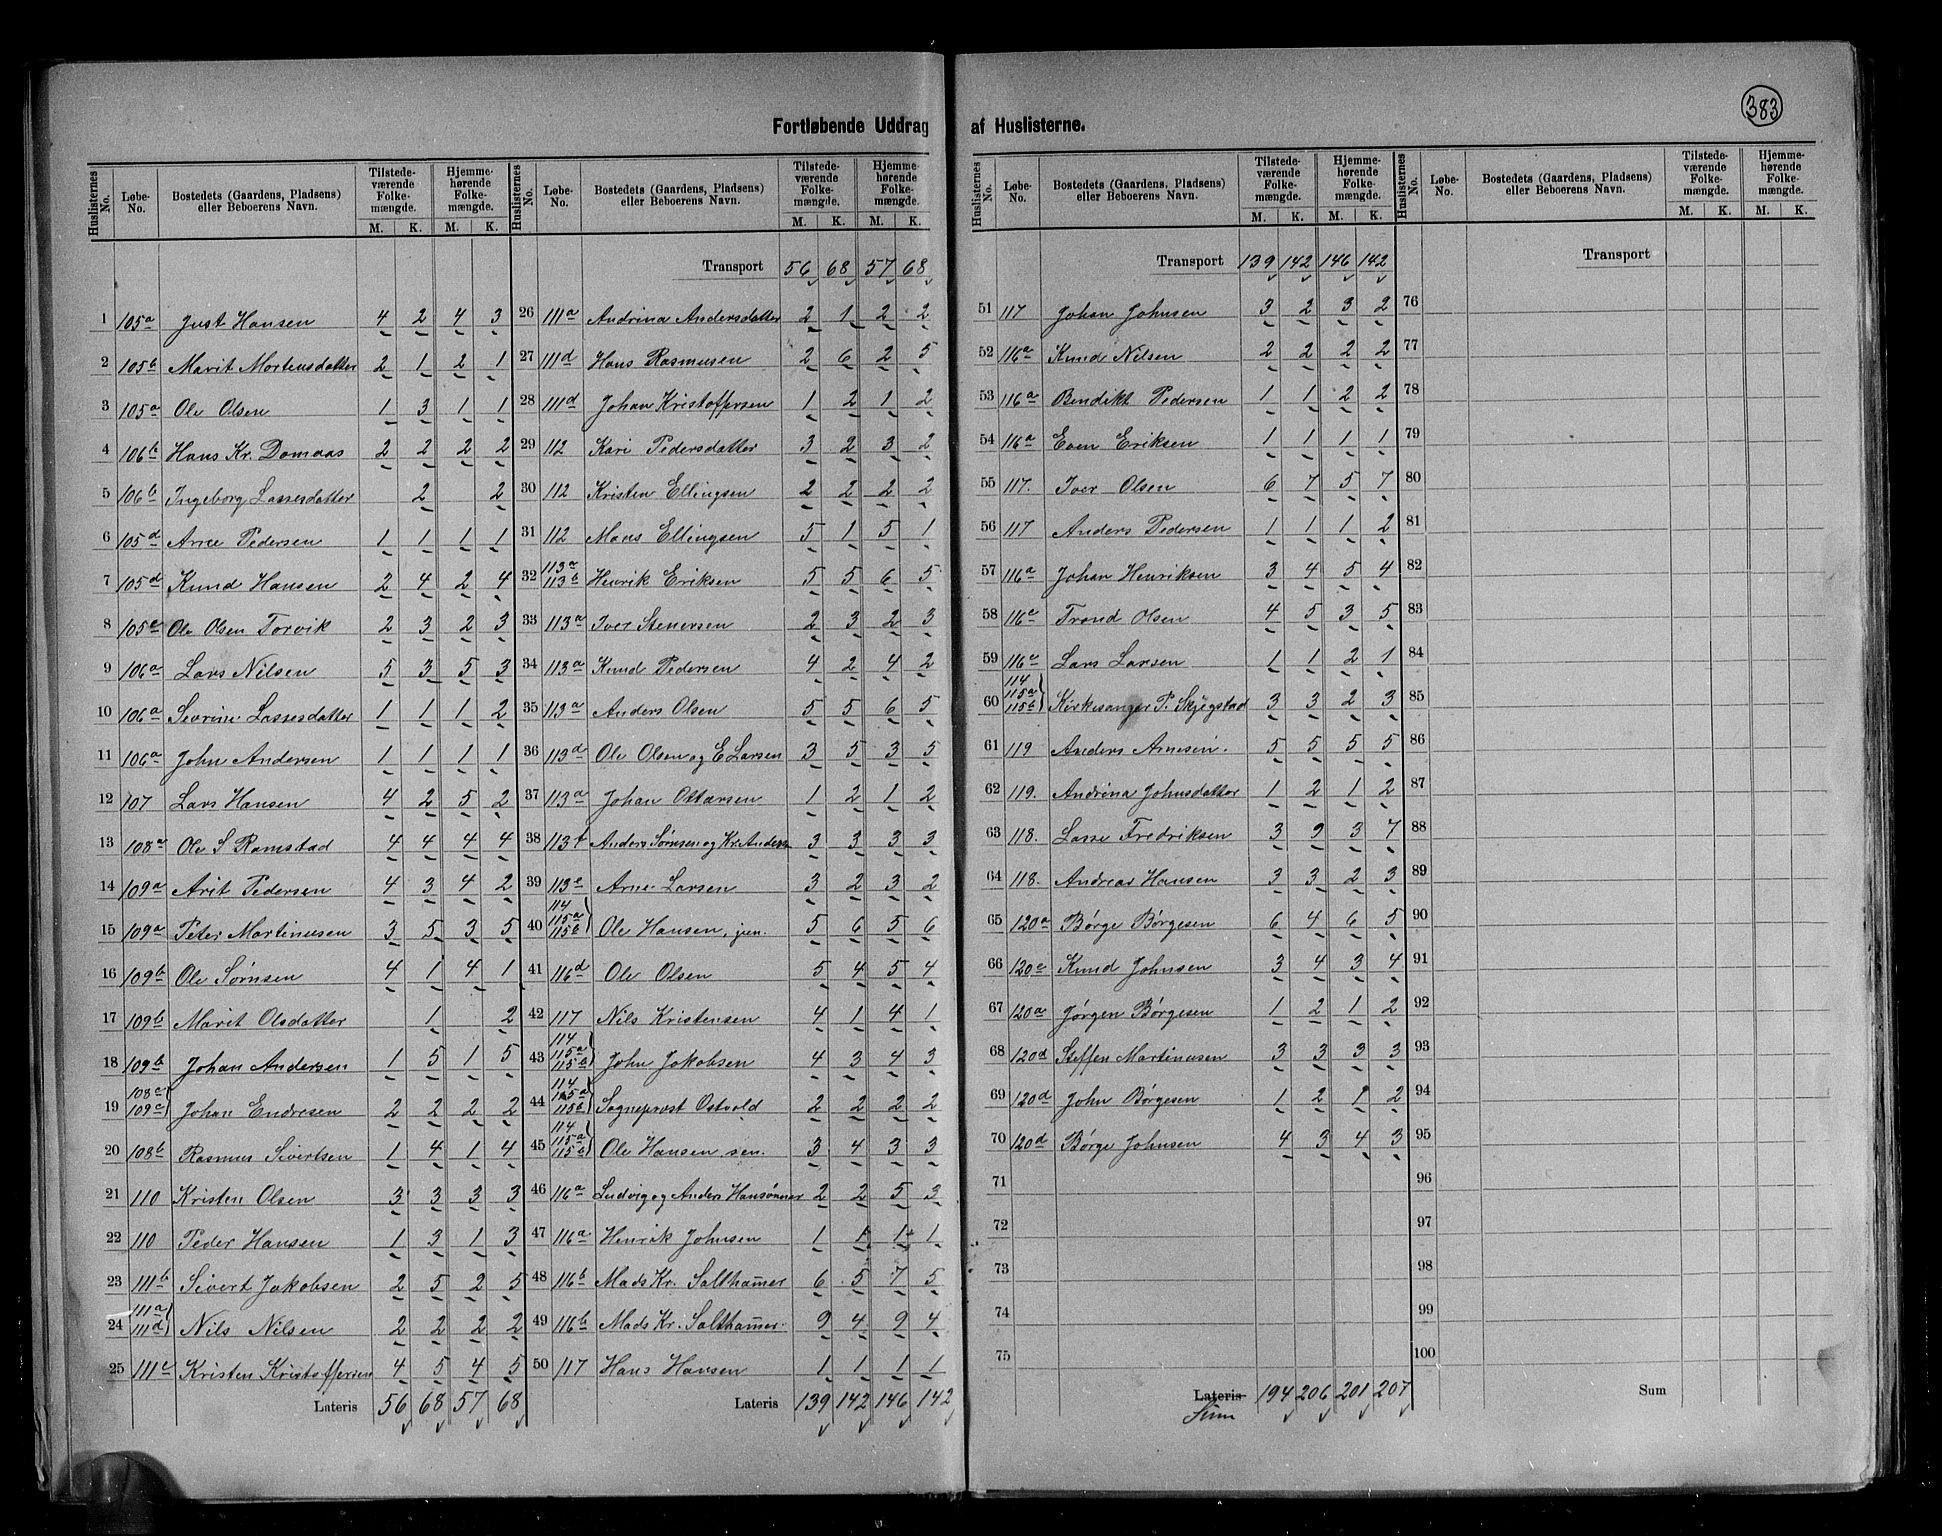 383
Fortløbende Uddrag af Huslisterne.
Huslisternes No. Løbe-No. Bostedets (Gaardens, Pladsens) eller Beboerens Navn. Tilstedeværende Folkemængde. M. K. Hjemmehørende Folkemængde. M. K.
1 105a Just Hansen 4 2 4 3
2 105b Marit Mortensdatter 2 1 2 1
3 105a Ole Olsen 1 3 1 1
4 106b Hans Kr. Domaas 2 2 2 2
5 106b Ingeborg Lassesdatter 2 2
6 105d Arne Pedersen 1 1 1 1
7 105d Knud Hansen 2 4 2 4
8 105c Ole Olsen Torvik 2 3 2 3
9 106a Lars Nilsen 5 3 5 3
10 106a Sivrine Lassesdatter 1 1 1 2
11 106a John Andersen 1 1 1 1
12 107 Lars Hansen 4 2 5 2
13 108a Ole S Ramstad 4 4 4 4
14 109a Arit Pedersen 4 3 4 2
15 109a Peter Martinusen 3 5 3 5
16 109b Ole Sørnsen 4 1 4 1
17 109b Marit Olsdatter 1 2
18 109b Johan Andersen 1 5 1 5
19 108c 109c Johan Endresen 2 2 2 2
20 108b Rasmus Sivertsen 1 4 1 4
21 110 Kristen Olsen 3 3 3 3
22 110 Peder Hansen 1 3 1 3
23 111b Sivert Jakobsen 2 5 2 5
24 111a 111d Nils Nilsen 2 2 2 2
25 111c Kristen Kristoffersen 4 5 4 5
Lateris 56 68 57 68
Huslisternes No. Løbe-No. Bostedets (Gaardens, Pladsens) eller Beboerens Navn. Tilstedeværende Folkemængde. M. K. Hjemmehørende Folkemængde. M. K.
Transport 56 68 57 68
26 111a Andrina Andersdatter 2 1 2 2
27 111d Hans Rasmusen 2 6 2 5
28 111d Johan Kristoffersen 1 2 1 2
29 112 Kari Pedersdatter 3 2 3 2
30 112 Kristen Ellingsen 2 2 2 2
31 112 Mons Ellingsen 5 1 5 1
32 113a 113b Henrik Eriksen 5 5 6 5
33 113a Iver Stenersen 2 3 2 3
34 113a Knud Pedersen 4 2 4 2
35 113a Anders Olsen 5 5 6 5
36 113d Ole Olsen og E Larsen 3 5 3 5
37 113a Johan Ottarsen 1 2 1 2
38 113b Anders Sørnsen og Kr. Anders 3 3 3 3
39 113c Arne Larsen 3 2 3 2
40 114 115a 115b Ole Hansen, jun. 5 6 5 6
41 116d Ole Olsen 5 4 5 4
42 117 Nils Kristensen 4 1 4 1
43 114 115a 115b John Jakobsen 4 3 4 3
44 114 115a 115b Sogneprest Ostvold 2 2 2 2
45 114 115a 115b Ole Hansen sen. 3 4 3 3
46 116a Ludvig og Anders Hansønner 2 2 5 3
47 116a Henrik Johnsen 1 1 1 1
48 116b Mads Kr. Salthamer 6 5 7 5
49 116b Mads Kr. Salthamer. 9 4 9 4
50 117 Hans Hansen 1 1 1 1
Lateris 139 142 146 142
Huslisternes No. Løbe-No. Bostedets (Gaardens, Pladsens) eller Beboerens Navn. Tilstedeværende Folkemængde. M. K. Hjemmehørende Folkemængde. M. K.
Transport 139 142 146 142
51 117 Johan Johnsen 3 2 3 2
52 116a Knud Nilsen 2 2 2 2
53 116a Bendikt Pedersen 1 1 2 2
54 116a Even Eriksen 1 1 1 1
55 117. Iver Olsen 6 7 5 7
56 117 Anders Pedersen 1 1 1 2
57 116a Johan Henriksen 3 4 5 4
58 116c Trond Olsen 4 5 3 5
59 116c Lars Larsen 1 1 2 1
60 114 115a 115b Kirkesanger P. Skjegstad 3 3 2 3
61 119 Anders Arnesen. 5 5 5 5
62 119. Andrina Johnsdatter 1 2 1 2
63 118. Lasse Fredriksen 3 9 3 7
64 118. Andreas Hansen 3 3 2 3
65 120a Børge Børgesen 6 4 6 5
66 120c Knud Johnsen 3 4 3 4
67 120a Jørgen Børgesen 1 2 1 2
68 120d Steffen Martinusen 3 3 3 3
69 120d John Børgesen 1 2 1 2
70 120d Børge Johnsen 4 3 4 3
71
72
73
74
75
Lateris Sum 194 206 201 207
Huslisternes No. Løbe-No. Bostedets (Gaardens, Pladsens) eller Beboerens Navn. Tilstedeværende Folkemængde. M. K. Hjemmehørende Folkemængde. M. K.
Transport
76
77
78
79
80
81
82
83
84
85
86
87
88
89
90
91
92
93
94
95
96
97
98
99
100
Sum